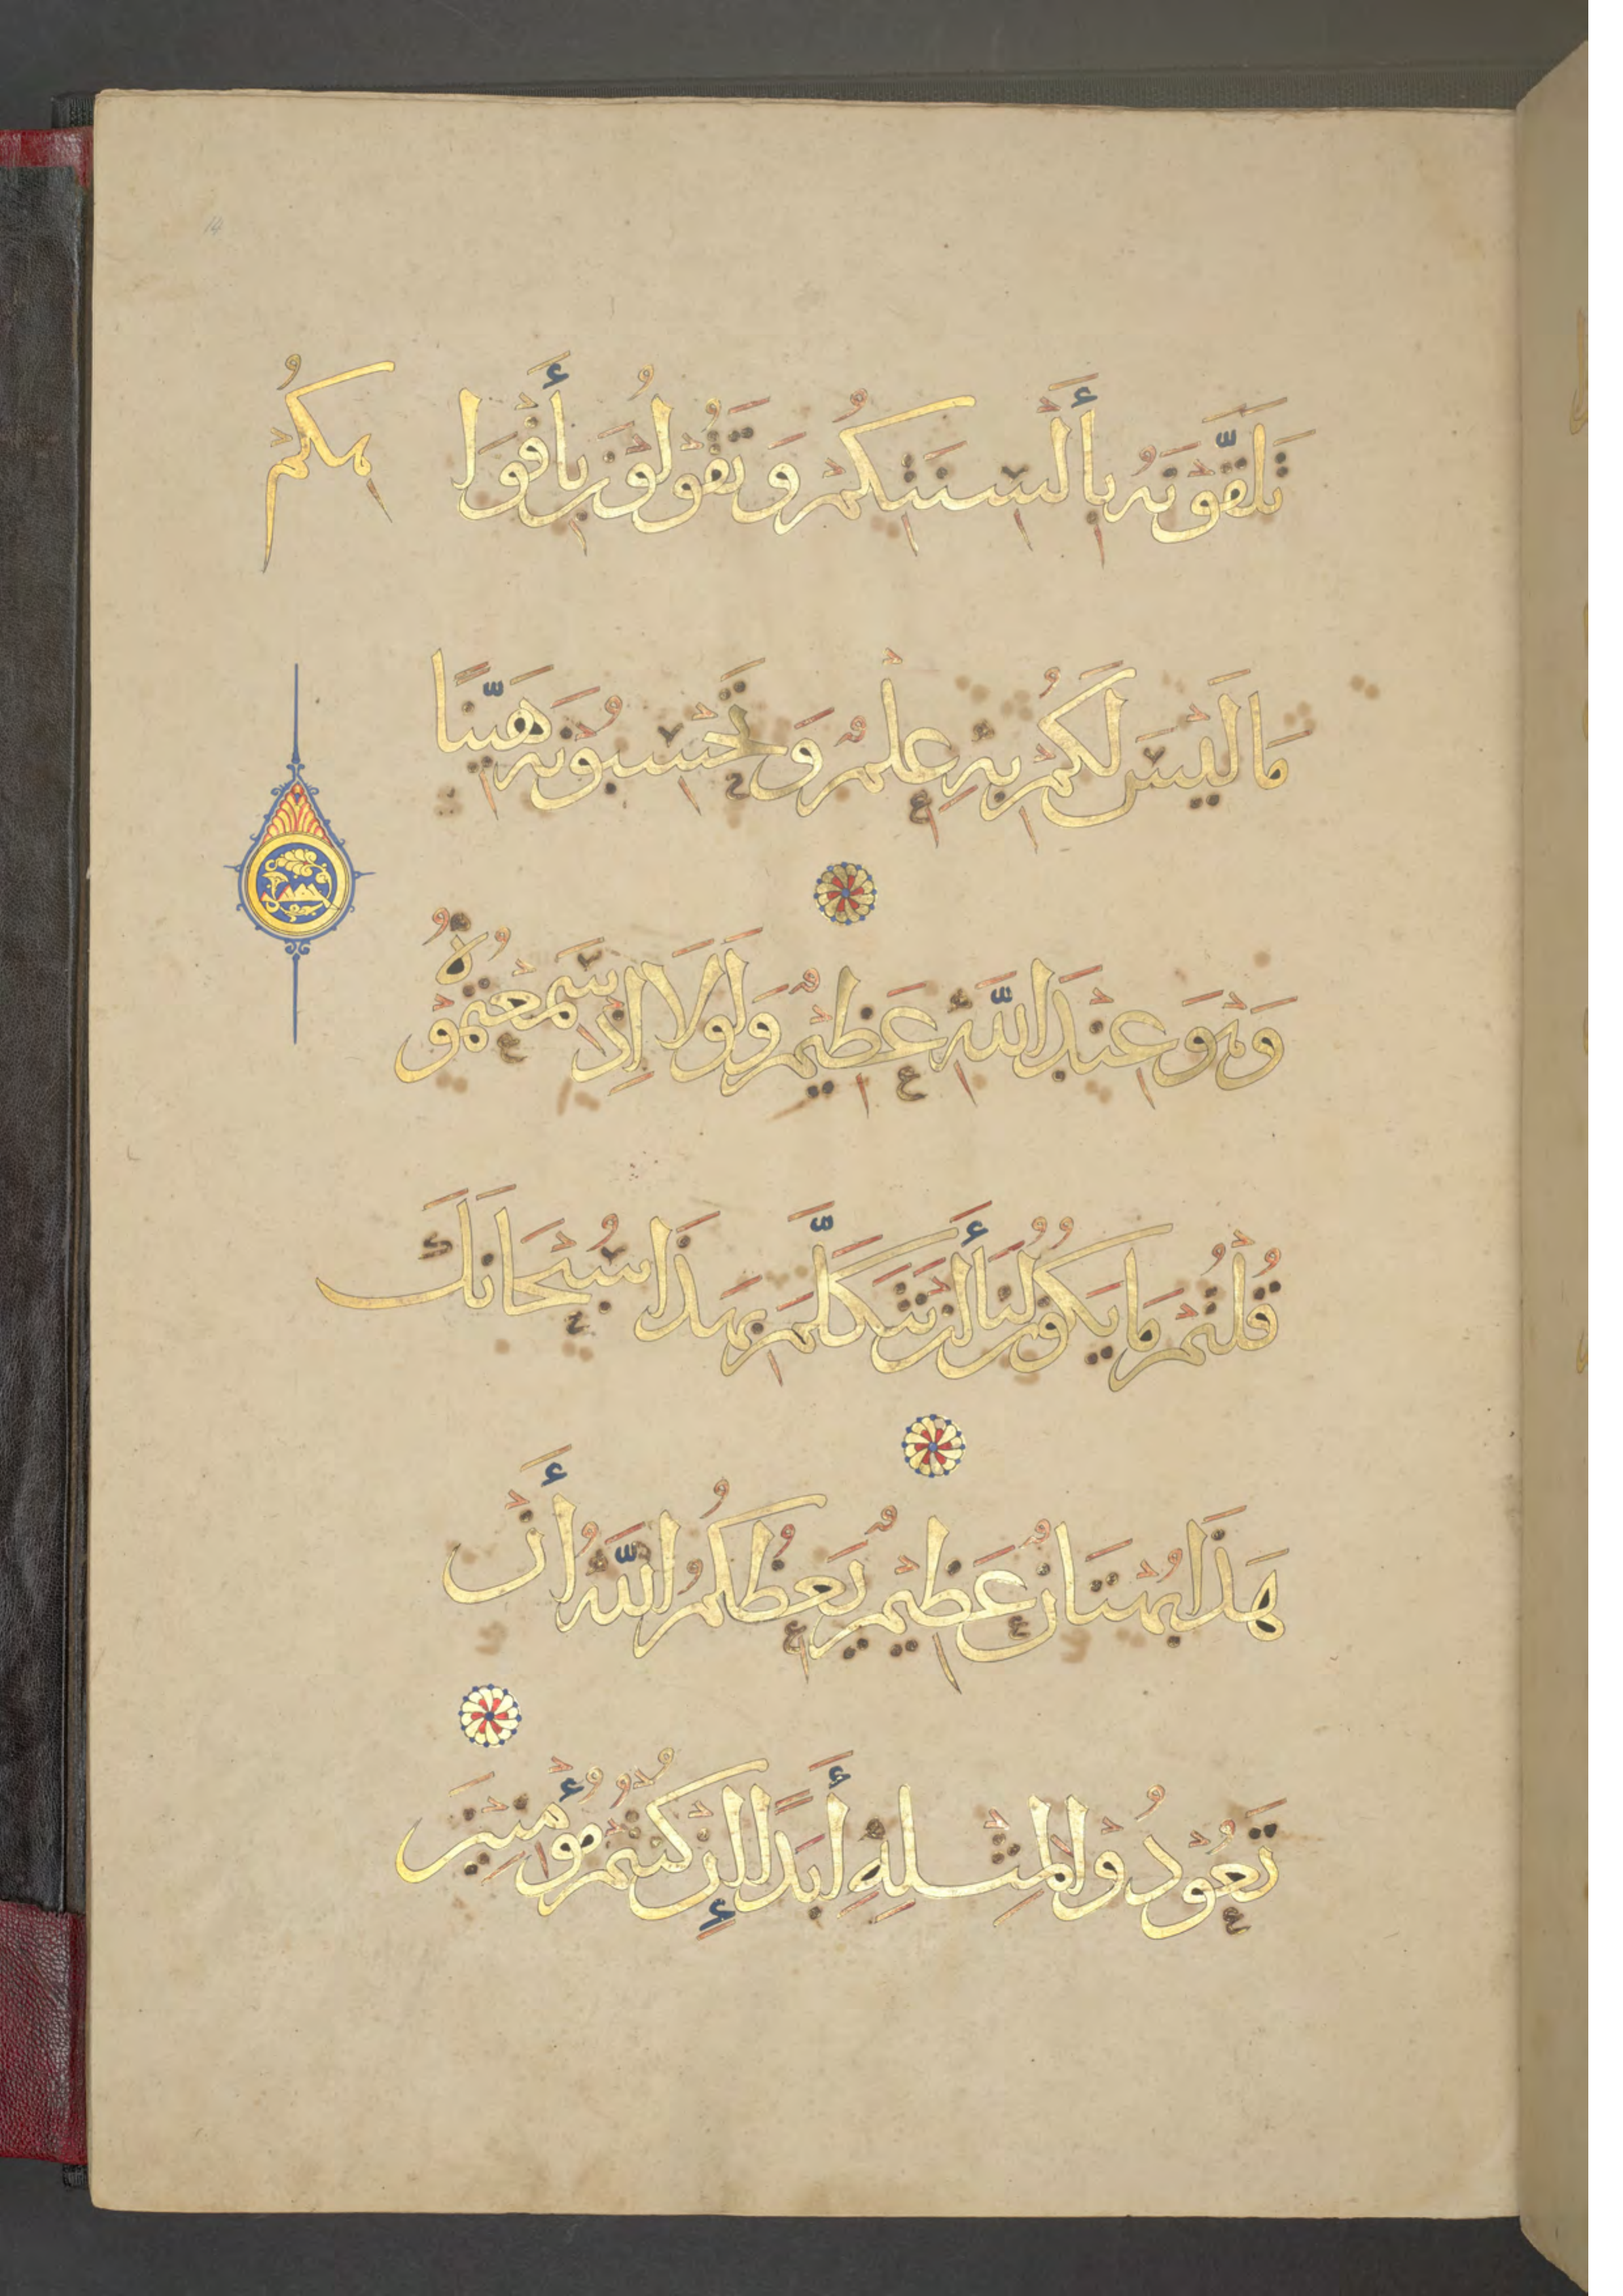 تَلَقَّوْنَهُ بِأَلْسِنَتِكُمْ وَتَقُولُونَ بِأَفْوَا
هِكُمْ
مَا لَيْسَ لَكُمْ بِهِ عِلْمٌ وَتَحْسِبُونَهُ هَيِّنًا
وَهْوَ عِنْدَ اللَّهِ عَظِيمٌ وَلَوْلَا إِذْ سَمِعْتُمُوهُ
قُلْتُمْ مَا يَكُونُ لَنَا أَنْ نَتَكَلَّمَ بِهَذَا سُبْحَانَكَ
هَذَا بُهْتَانٌ عَظِيمٌ يَعِظُكُمُ اللَّهُ أَنْ
تَعُودُوا لِمِثْلِهِ أَبَدًا إِنْ كُنْتُمْ مُؤْمِنِينَ
14